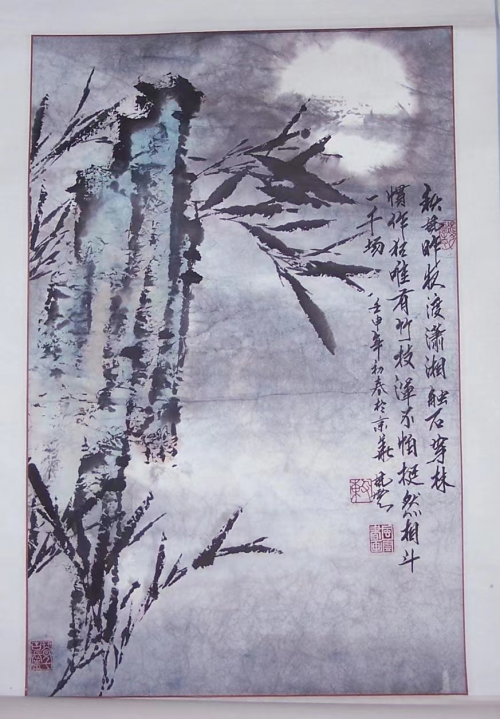 秋風昨夜渡瀟湘触石穿林
慣作狂唯有竹枝渾不怕挺然相斗
一千场
壬申年初春於京華